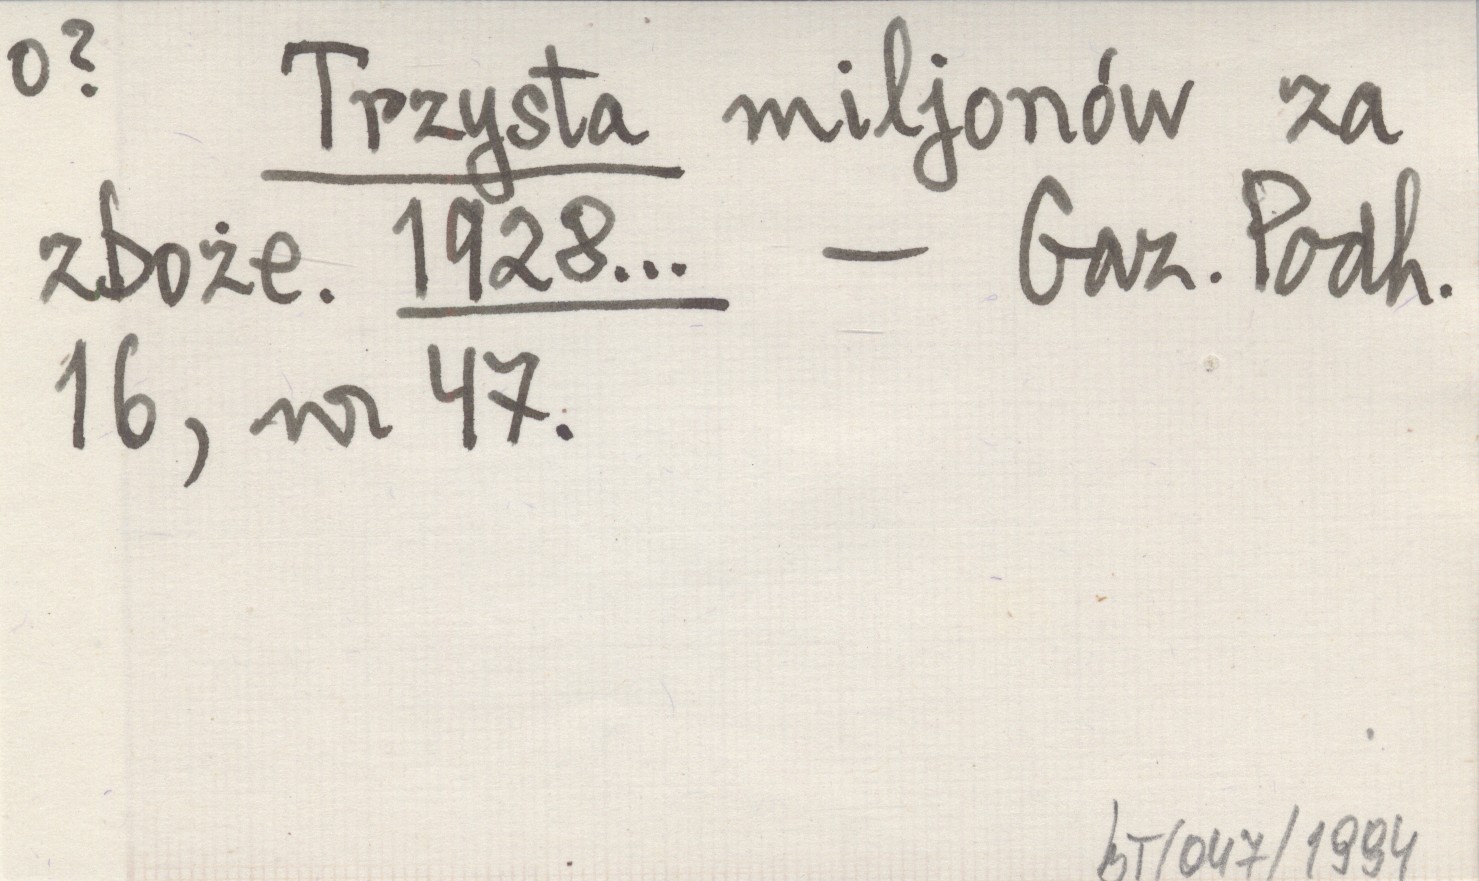 o? Trzysta miljonów za
zboże. 1928... — Gaz. Podh.
16, nr 47.
bT/047/1994